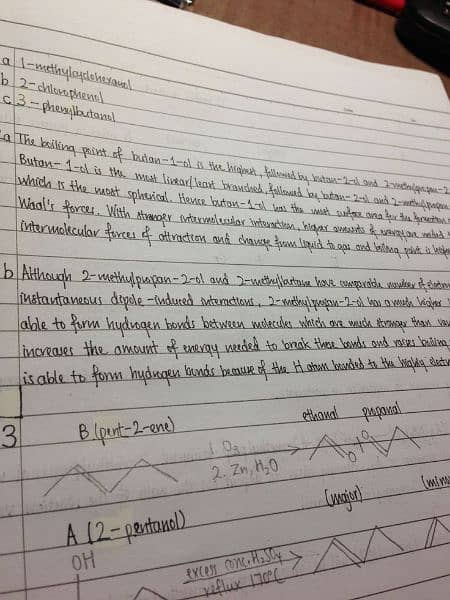 a 1-methylcyclohexanol
b 2-chlorophenol
c 3-phenylbutanol
a The boiling point of butan-1-ol is the highest, followed by butan-2-ol and 2-methylpropan-2
Butan-1-ol is the most linear/least branched, followed by butan-2-ol and 2-methylpropan
which is the most spherical. Hence butan-1-ol has the most surface area for the formation
Waal's forces. With stronger intermolecular interaction, higher amounts of energy are needed
intermolecular forces of attraction and change from liquid to gas and boiling point is higher
b Although 2-methylpropan-2-ol and 2-methylbutane have comparable number of electrons
instantaneous dipole-induced interactions, 2-methylpropan-2-ol has a much higher
able to form hydrogen bonds between molecules which are much stronger than van
increases the amount of energy needed to break these bonds and raises boiling
is able to form hydrogen bonds because of the H atom bonded to the highly elect
ethanal propanal
3 B (pent-2-ene)
1. O3
2. Zn, H2O
O O
(major)
A (2-pentanol)
OH
excess conc. H2SO4
reflux 170°C